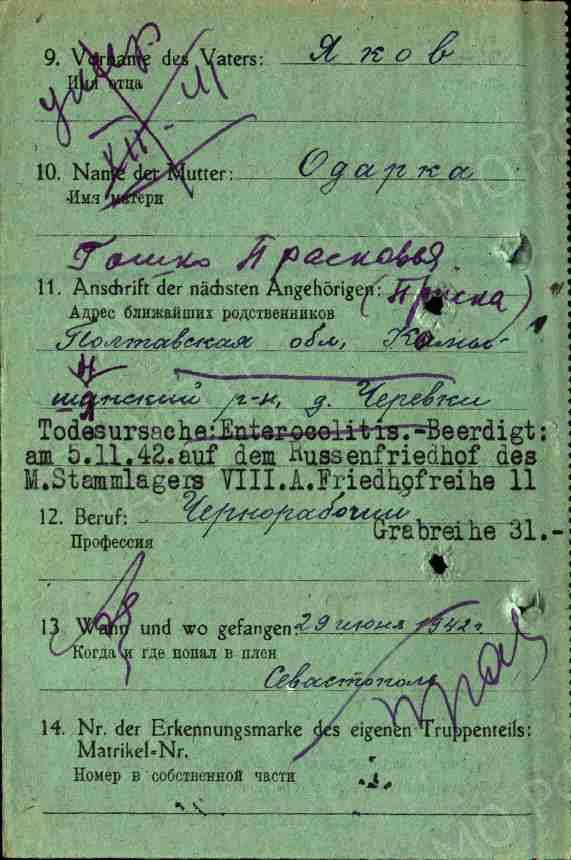 9. Vorname des Vaters: Яков
Имя отца
умер
КН-III
10. Name der Mutter: Одарка
Имя матери
Гошко Прасковья
11. Anschrift der nächsten Angehörigen: (Приска)
Адрес ближайших родственников
Полтавская обл, Камы-
шанский р-н, д. Черевки
Todesursache:Enterocolitis.-Beerdigt:
am 5.11.42.auf dem Russenfriedhof des
M.Stammlagers VIII.A.Friedhofreihe 11
12. Beruf: Чернорабочий
Grabreihe 31.-
Профессия
13 Wann und wo gefangen: 29 июня 1942 г
Когда и где попал в плен
Севастополь
14. Nr. der Erkennungsmarke des eigenen Truppenteils:
Matrikel-Nr.
Номер в собственной части